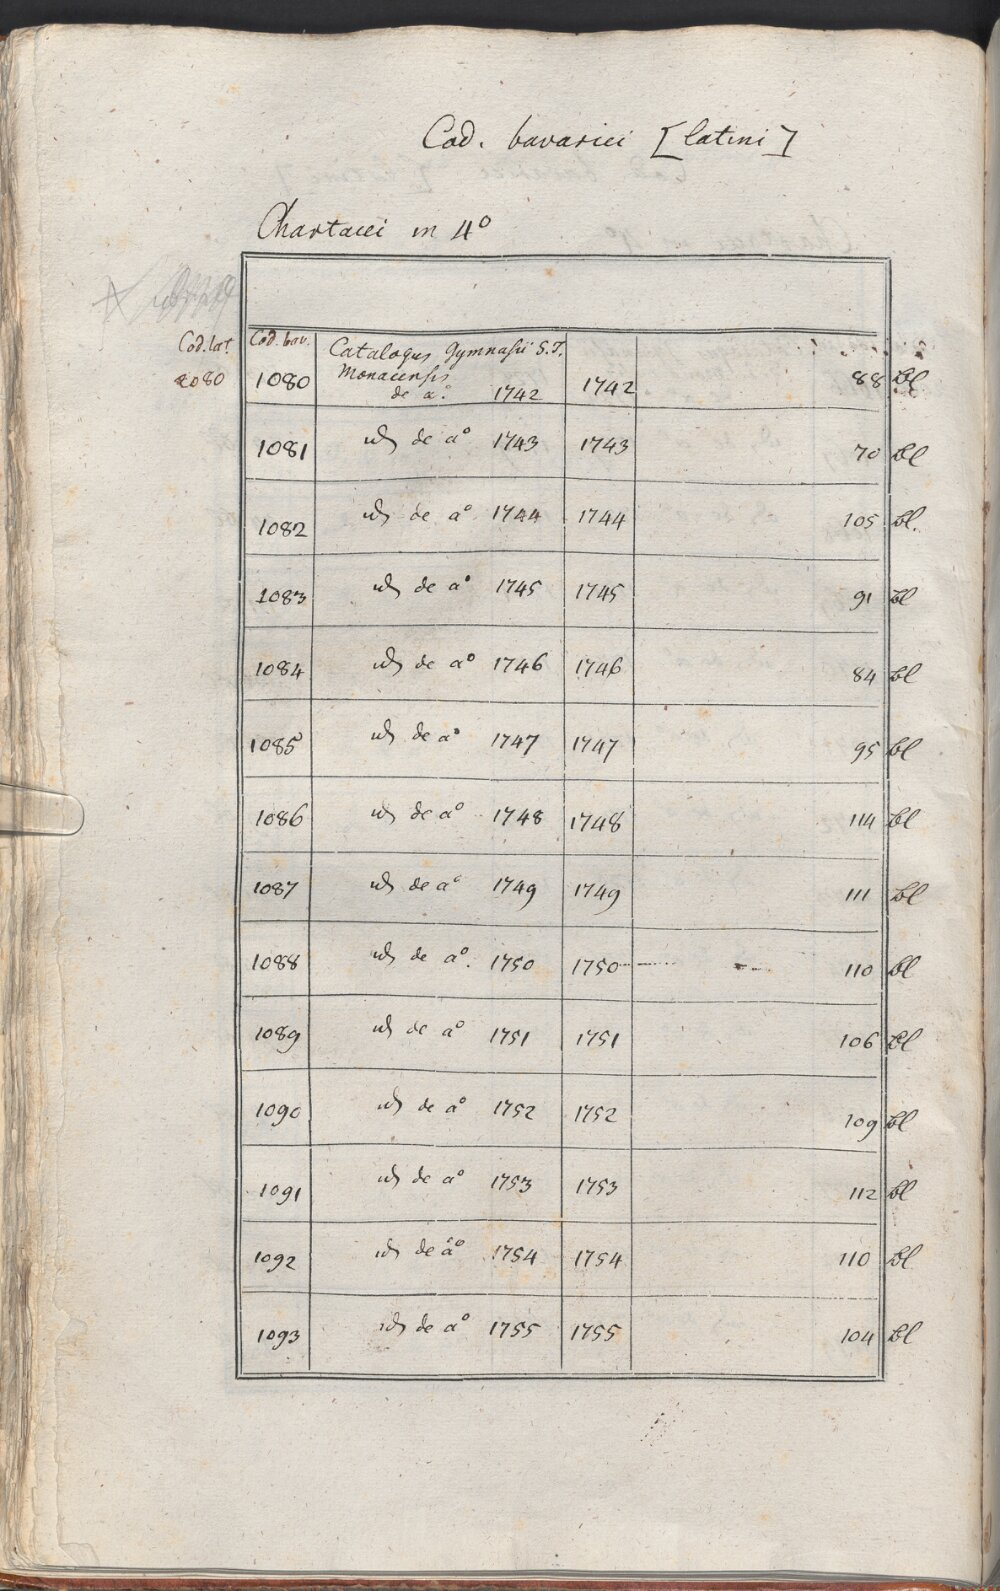 Cod. bavarici [latini]
Chartacei in 4º
Cod. lat. Cod. bav. Catalogus Gymnasii S.J.
2080 1080 Monacensis
de aº. 1742 1742 88 Bl
1081 id de aº 1743 1743 70 Bl
1082 id de aº 1744 1744 105 Bl.
1083 id de aº 1745 1745 91 Bl
1084 id de aº 1746 1746 84 Bl
1085 id de aº 1747 1747 95 Bl
1086 id de aº 1748 1748 114 Bl
1087 id de aº 1749 1749 111 Bl
1088 id de aº. 1750 1750 110 Bl
1089 id de aº 1751 1751 106 Bl
1090 id de aº 1752 1752 109 Bl
1091 id de aº 1753 1753 112 Bl
1092 id de aº 1754 1754 110 Bl
1093 id de aº 1755 1755 104 Bl